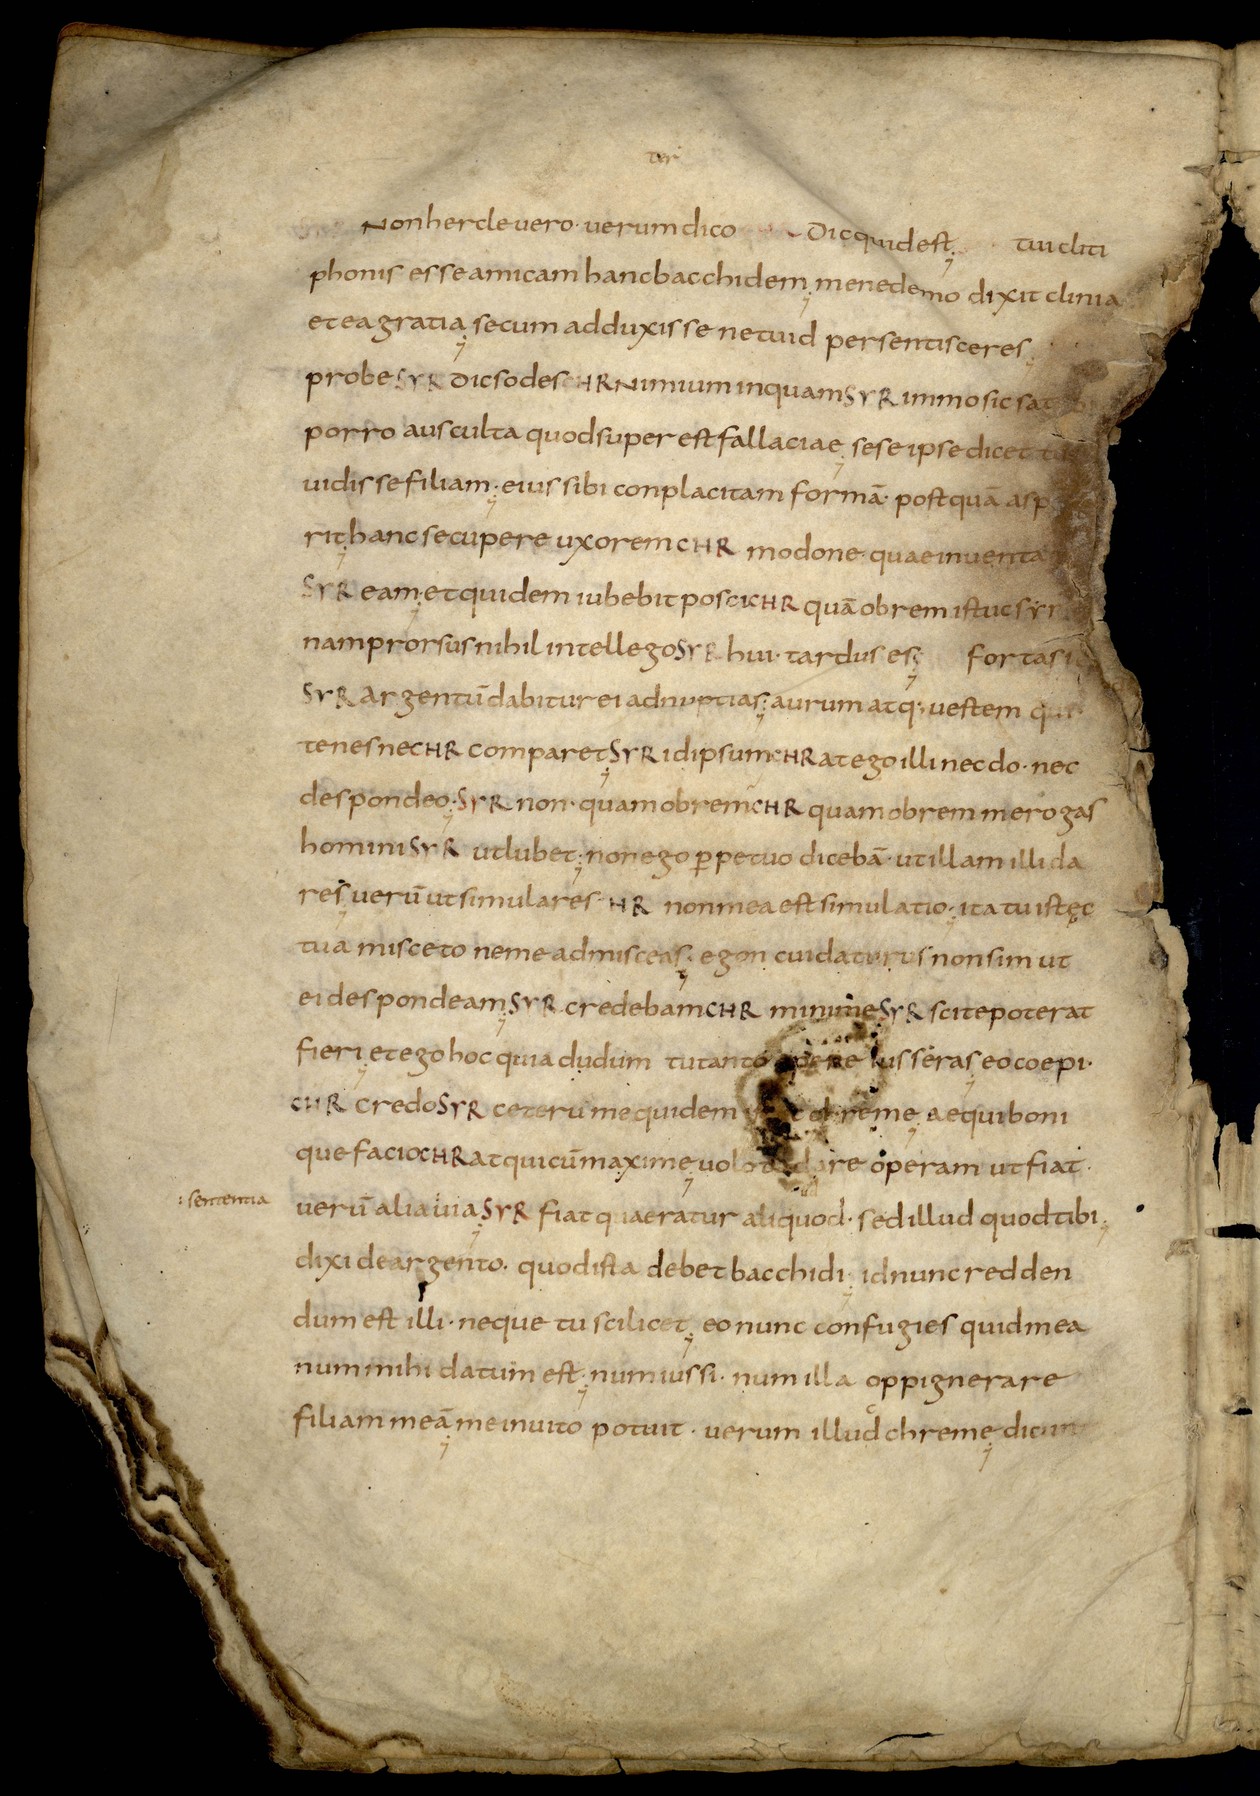 ter
Non hercle vero · verum dico Dic quid est; tui cliti
phonis esse amicam hanc bacchidem; menedemo dixit clinia
et ea gratia; secum adduxisse ne tu id persentisceres
probe SYR Dic sodes CHR Nimium inquam SYR immo sic sat
porro ausculta quod super est fallaciae; sese ipse dicet
vidisse filiam; eius sibi conplacitam formā · postquā asp
rit; hanc se cupere uxorem CHR modone · quae inventa
SYR eam; et quidem iubebit posci CHR quā obrem istuc syr
nam prorsus nihil intellego SYR hui · tardus es; fortas
SYR argentū dabitur ei ad nuptias; aurum atq; vestem qui
tenesne CHR comparet; SYR id ipsum CHR at ego illi nec do · nec
despondeo; SYR non · quam obrem CHR quam obrem me rogas
homini SYR ut lubet; non ego ꝑpetuo dicebā · ut illam illi da
res; verū ut simulares · HR non mea est simulatio; ita tu istęc
tua misceto ne me admisceas; egon cui daturus non sim ut
ei despondeam; SYR credebam CHR minime SYR scite poterat
fieri; et ego hoc quia dudum tu tanto opere iusseras; eo coepi ·
CHR credo SYR ceterū me quidem chreme; aequi boni
que facio CHR atqui cū maxime; volo dare operam ut fiat ·
: sententia
verū alia via; SYR fiat quaeratur aliquod · sed illud quod tibi;
dixi de argento · quod ista debet bacchidi; id nunc redden
dum est illi · neque tu scilicet; eo nunc confugies quid mea
num mihi datum est; num iussi · num illa oppignerare
filiam meā; me invito potuit · verum illud chreme; dicun